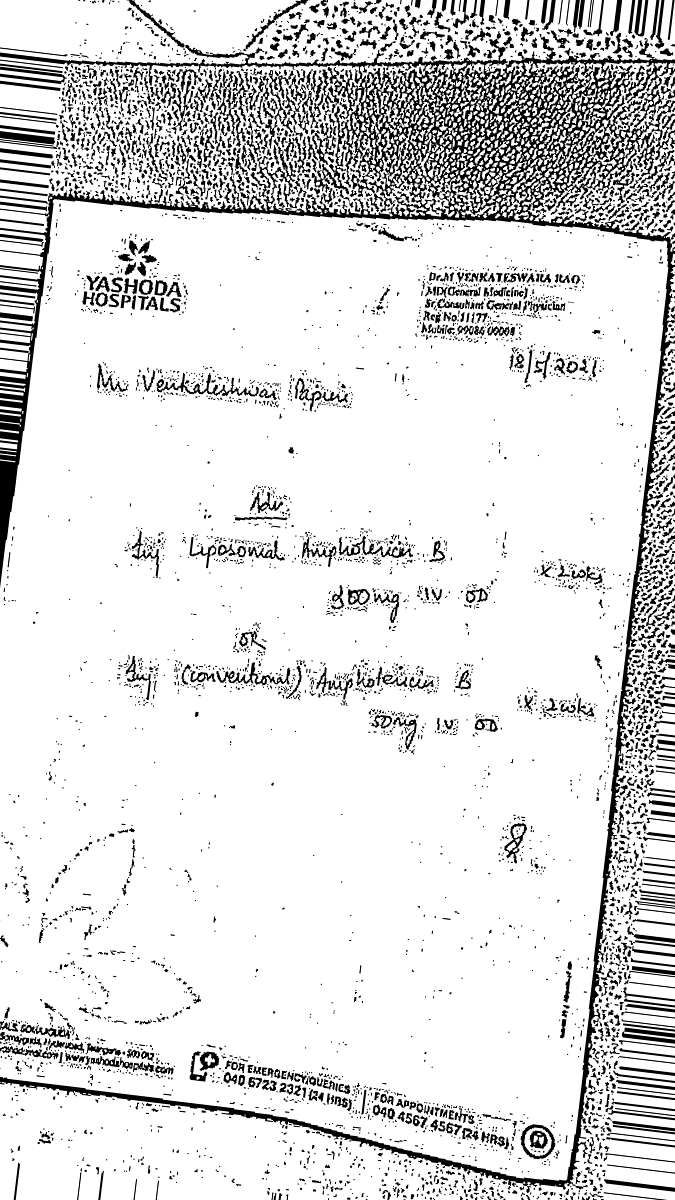 YASHODA
HOSPITALS
Dr.M VENKATESWARA RAO
MD(General Medicine)
Sr.Consultant General Physician
Reg No.11177
Mobile: 99086 00008
18/5/2021
Mr Venkateshwar
Adv
Inj Liposomal Amphotericin B x 2wks
mg IV OD
OR
Inj (conventional) Amphotericin B x 2wks
50mg IV OD
SOMAJIGUDA
Somajiguda, Hyderabad, Telangana - 500 082
www.yashodahospitals.com
FOR EMERGENCY/QUERIES
040 6723 2321 (24 HRS)
FOR APPOINTMENTS
040 4567 4567 (24 HRS)